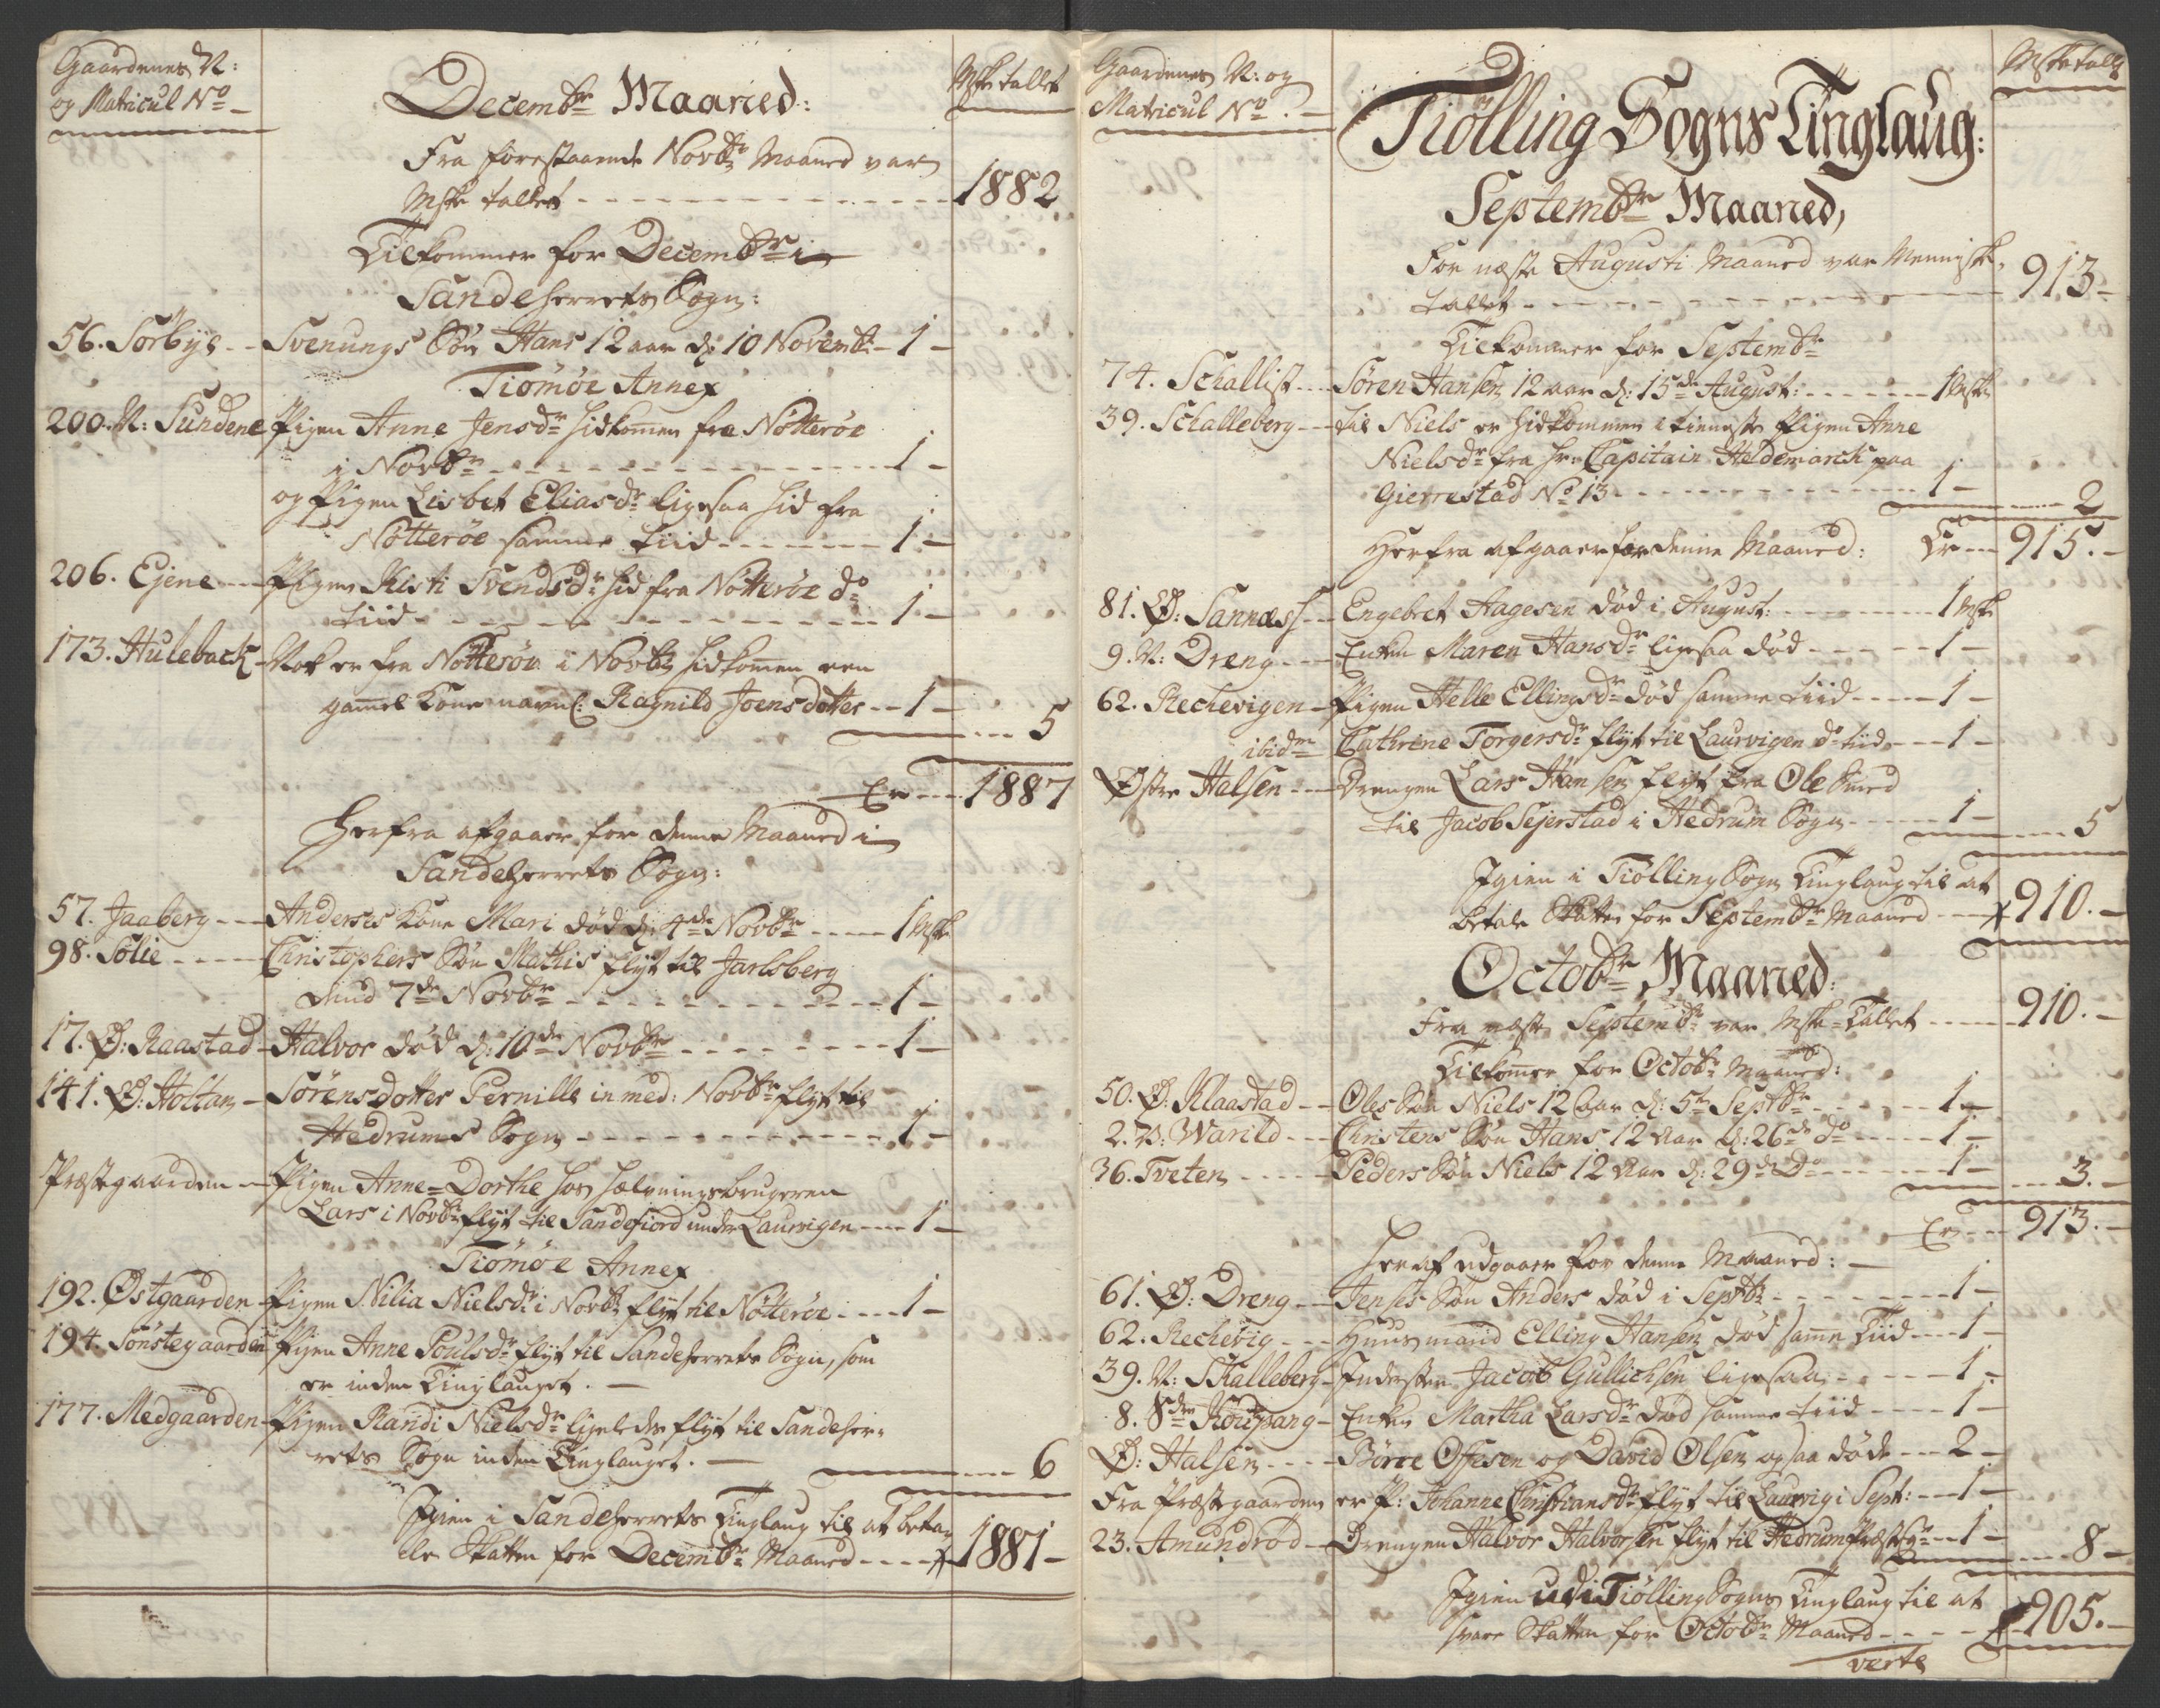 Gaardenes N:
og Matricul No
Decembr Maaned:
Mske tallet
Fra forestaaende Novbr Maaned var
Mske tallet - - - 1882
Tilkommer for Decembr i
Sandeherrets Sogn:
56. Sörbye - - Svenungs Sön Hans 12 aar d: 10 Novembr - 1 -
Tiömöe Annex
200. N: Sundene Pigen Anne Jensdr hidkommen fra Nötteröe
i Novbr - - - 1 -
og Pigen Lisbet Eliasdr ligesaa hid fra
Nötteröe samme tiid - - - 1 -
206. Ejene - - Pigen Kisti Svendsdr hid fra Nötteröe do
tiid - - - 1 -
173. Huleback - Nok er fra Nötteröe i Novbr hidkommen een
gammel Kone navnl: Ragnild Joensdotter - - 1 -
5
Er - - - 1887
Herfra afgaaer for denne Maaned i
Sandeherrets Sogn:
57. Jaaberg - - Anderses Kone Mari död d: 4de Novbr - - - 1 Mske
98. Solie - - - Christophers Sön Mathis flyt til Jarlsberg
7de Novbr - - - 1 -
17. Ö: Raastad - Halvor död d: 10de Novbr - - - 1 -
141. Ö: Holtan - Sörensdotter Pernille in med: Novbr flyt til
Hedrums Sogn - - - 1 -
Præstegaarden - - Pigen Anne=Dorthe hos hælvningsbrugeren
Lars i Novbr flyt til Sandefiord under Laurvigen - - - 1 -
Tiömöe Annex
192. Östgaarden - Pigen Nilia Nielsdr i Novbr flyt til Nötteröe - - - 1 -
194. Sönstegaarden Pigen Anne Poulsdr flyt til Sandeherrets Sogn, som
er inden Tinglauget. -
177. Medgaarden - Pigen Randi Nielsdr ligeledes flyt til Sandeher-
rets Sogn inden Tinglauget. -
6
Igien i Sandeherrets Tinglaug til at beta-
le Skatten for Decembr Maaned - - - 1881 -
Gaardenes N: og
Matricul No. -
Msketallet
Tiölling Sogns Tinglaug:
Septembr Maaned,
For næste Augusti Maaned var Menniske-
tallet - - - 913 -
Tilkommer for Septembr
74. Schallist - - Sören Hansen 12 aar d: 15de August: - - - 1 Mske
39. Schalleberg - - til Niels er hidkommen i tienneste Pigen Anne
Nielsdr fra Hr: Capitain Heldemarck paa
Gierrestad No 13 - - - 1 -
2
Herfra afgaaer for denne Maaned: Er - - 915. -
81. Ö: Sannæss - - Engebret Aagesen död i August: - - - 1 Mske
9. N: Dreng - - - Enken Maren Hansdr ligesaa död - - - 1 -
62. Rechevigen - Pigen Helle Ellingsdr död samme tiid - - - 1 -
ibidm Cathrine Torgersdr flyt til Laurvigen do tiid - - - 1 -
Östre Halsen - - Drengen Lars Hansen flyt fra Ole Smed
til Jacob Sejerstad i Hedrum Sogn - - - 1 -
5
Igien i Tiölling Sogn Tinglaug til at
betale Skatten for Septembr Maaned - - 910. -
Octobr Maaned:
Fra næste Septembr var Mske=Tallet - - - 910. -
Tilkommer for Octobr Maaned:
50. Ö: Klaastad - - Oles Sön Niels 12 Aar d: 5te Septbr - - - 1 -
2. V: Warild - - - Christens Sön Hans 12 Aar d: 26de do - - - 1 -
36. Tveten - - - Peders Sön Niels 12 Aar d: 29de Do - - - 1 -
3. -
Er - - - 913. -
Her af udgaaer for denne Maaned: -
61. Ö: Dreng - - Jenses Sön Anders död i Septbr - - - 1 -
62. Rechevig - - - Huusmand Elling Hansen död samme Tiid - - - 1 -
39. N: Skalleberg - Indersten Jacob Gullichsen ligesaa - - - 1 -
8. Sdre Koupang - Enken Martha Larsdr död samme tiid - - - 1 -
Ö: Halsen - - - Börre Offesen og David Olsen ogsaa döde - - - 2 -
Fra Præstegaarden er P: Johanne Christiansdr flyt til Laurvig i Sept: - - 1 -
23. Amundröd - Drengen Halvor Halvorsen flyt til Hedrum Præstegr - - 1 -
8 -
Igien udi Tiölling Sogns Tinglaug til at
svare Skatten for Octobr Maaned - - - 905. -
verte